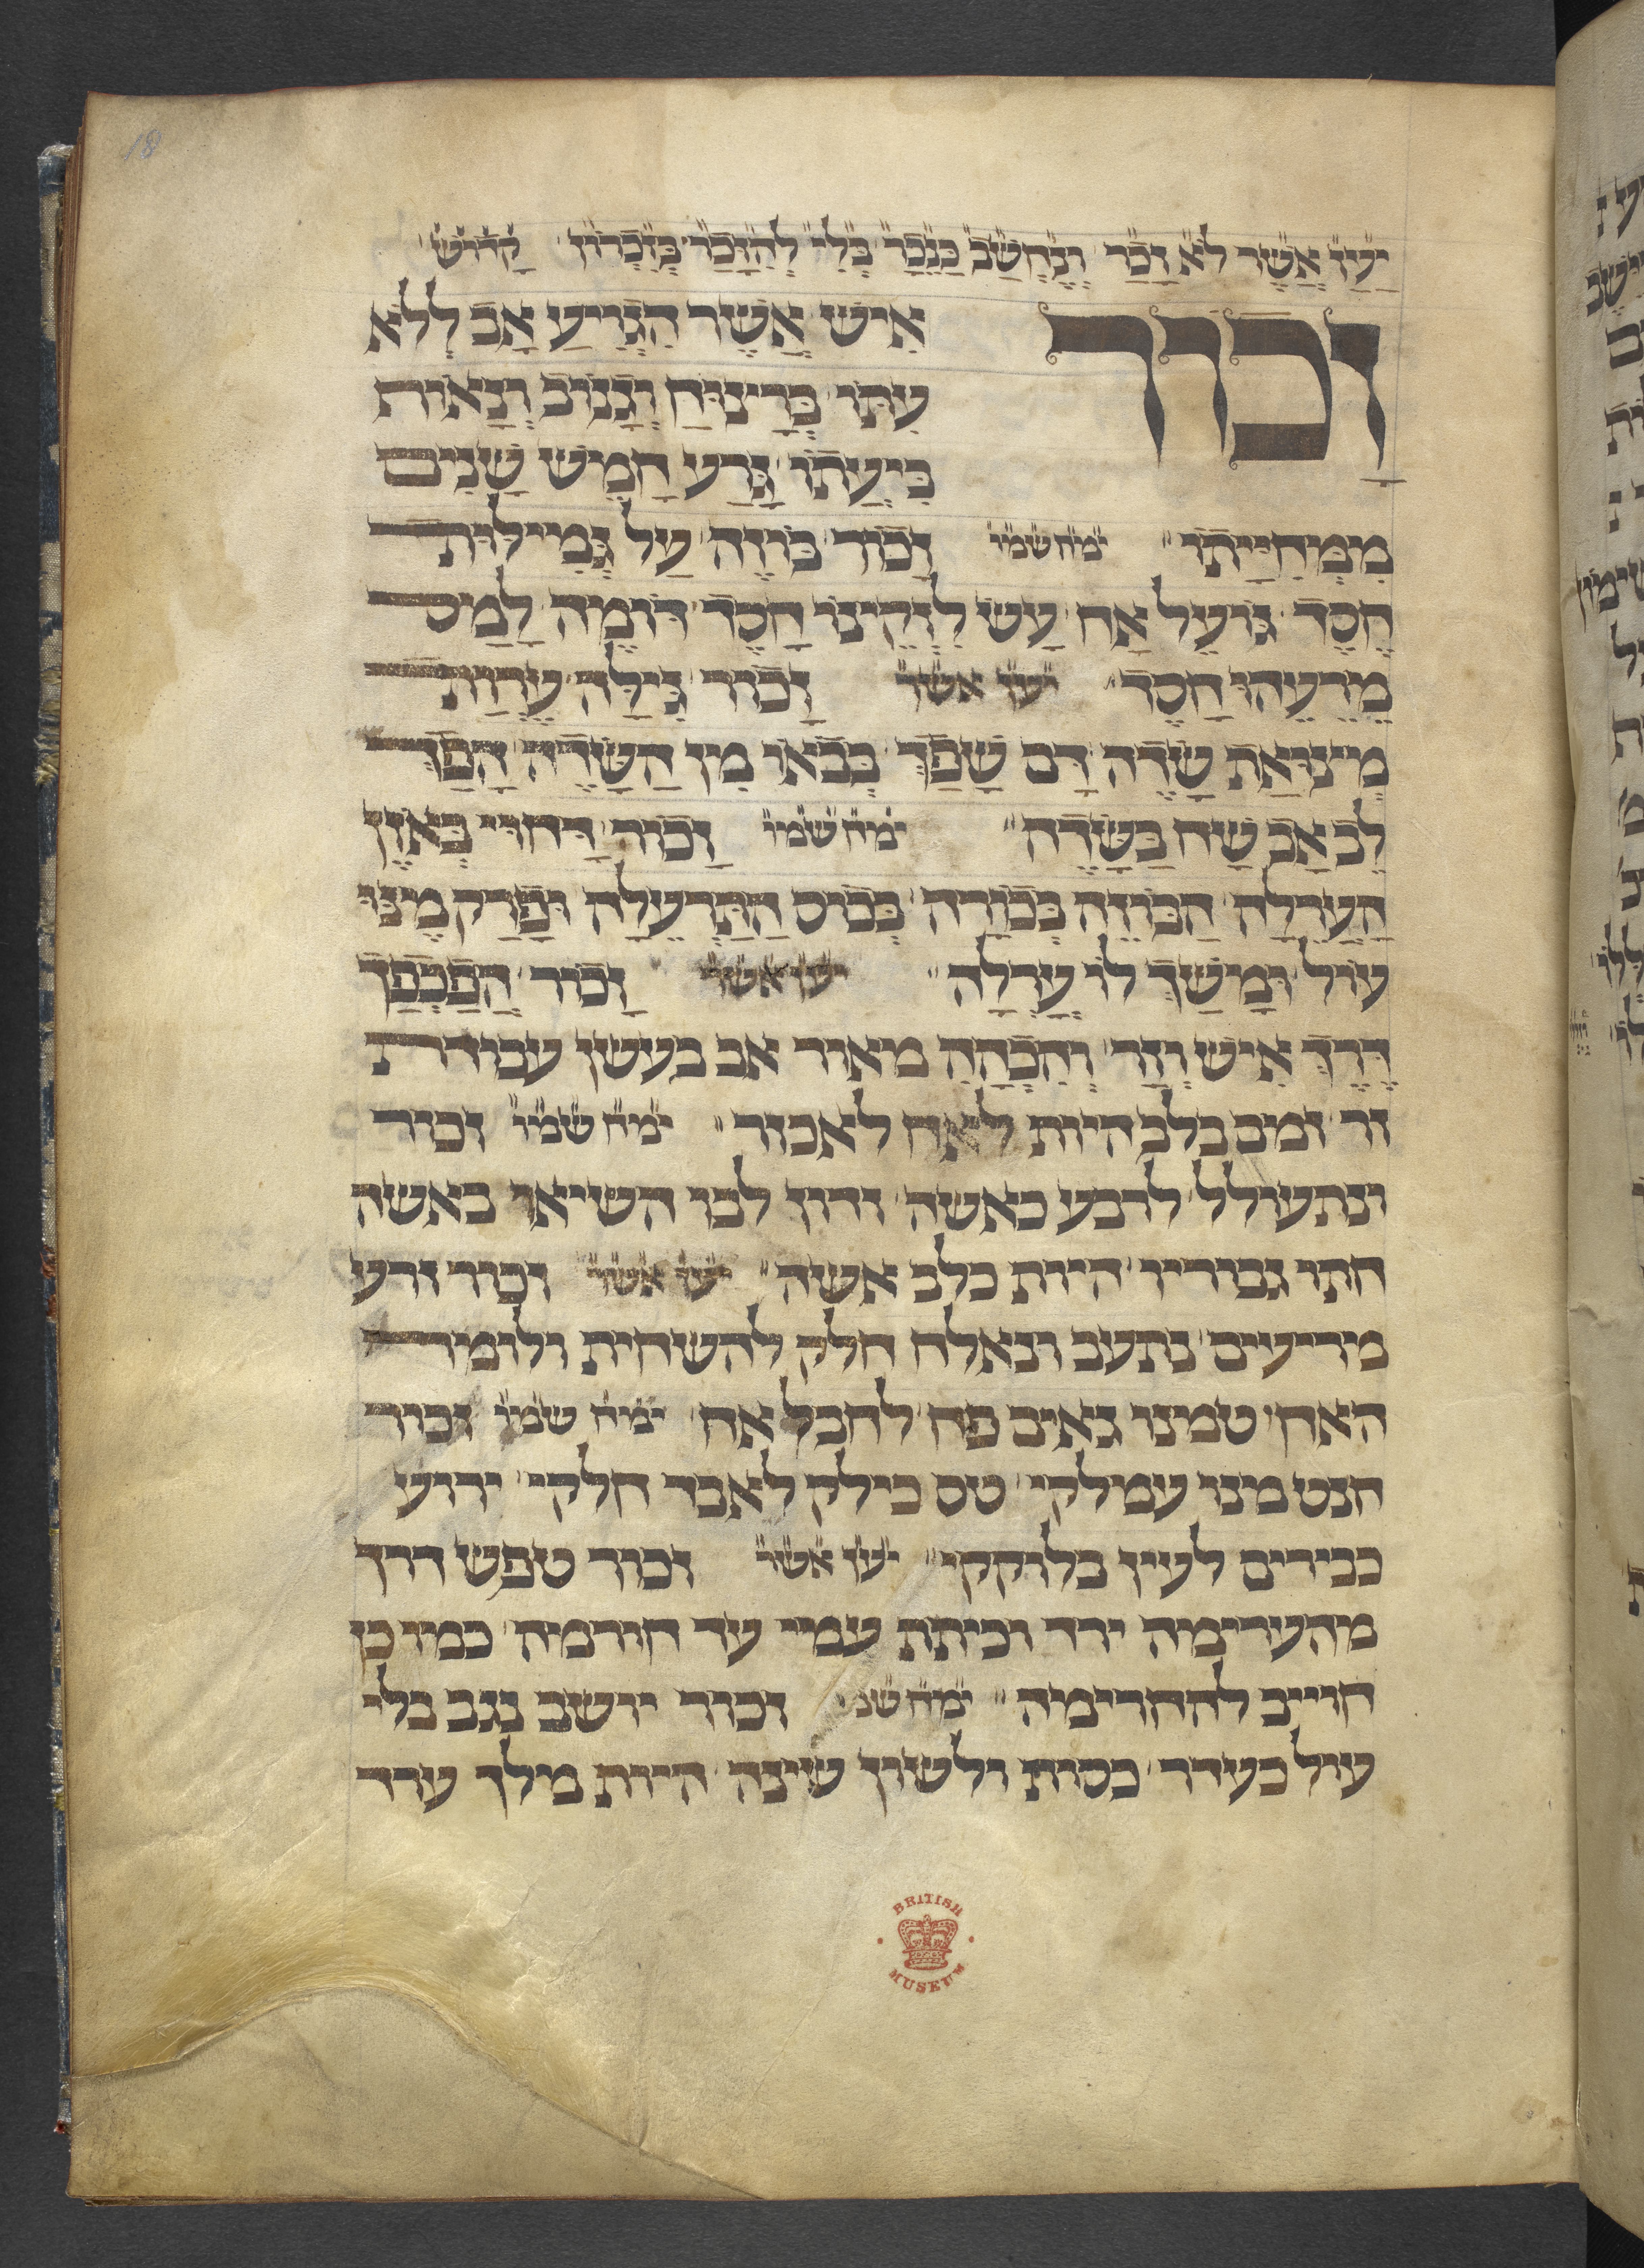 18
יַעַן אֲשֶׁר לֹא זָכַר וְנֶחְשַׁב כְּנֵכָר בְּלִי לְהִזָּכֵר בְּזִכָּרוֹן קָדוֹשׁ
זָכוֹר
אִישׁ אֲשֶׁר הִגְרִיעַ אָב לְלֹא
עִתּוֹ בְּרִיצוּחַ וְגָנוֹב וְנָאוֹת
בִּיעָתוֹ גָּרַע חָמֵשׁ שָׁנִים
מִמִּחְיָיתוֹ ימח שמו זָכוֹר בּוֹזֶה עַל גְּמִילוּת
חֶסֶד גּוֹעֵל אָח עָשׁ לִזְקֵינוֹ חָסֶד דּוֹמֶה לַמָּס
מֵרֵעֵהוּ חָסֶד יען אשר זָכוֹר גִּילָּה עֶרְוַת
מְינוֹאֵת שָׂדֶה דָּם שָׁפַךְ בְּבֹאוֹ מִן הַשָּׂדֶה הָפַךְ
לֵב אָב שָׂח בַּשָּׂדֶה ימח שמו זָכוֹר דָּחוּי בְּאֹזֶן
הָעֲרֵלָה הַבּוֹזֶה בְּכוֹרָה בְּכוֹס הַתַּרְעֵלָה וּפָרַק מֶנּוּ
עוֹל וּמָשַׁךְ לוֹ עָרְלָה יען אשר זָכוֹר הֲפַכְפַּךְ
דֶּרֶךְ אִישׁ וָזָר וְהִכְהָה מאור אב בעשן עבודת
זר זמם בלב היות לאח לאכזר ימח שמו זכור
ונתעולל לובע כאשה זדון לבו השיאו באשה
חתו גבוריו היות כלב אשה יען אשר זכור זרע
מריעים נתעב ונאלח חלק להשחית ולזמר
האח טמינו גאים פח לחבל אח ימח שמו זכור
חנט מנו עמלקי טס כילק לאבד חלקי ידוע
כבידים לעין בלוקקי יען אשר זכור טפש דרך
מהערימה ירד וכיתת עמיי עד חורמה כמו כן
חוייב להחרימה ימח שמ זכור יושב נגב בלי
עול כעדר כסות ולשון שינה היות מלך ערד
BRITISH MUSEUM